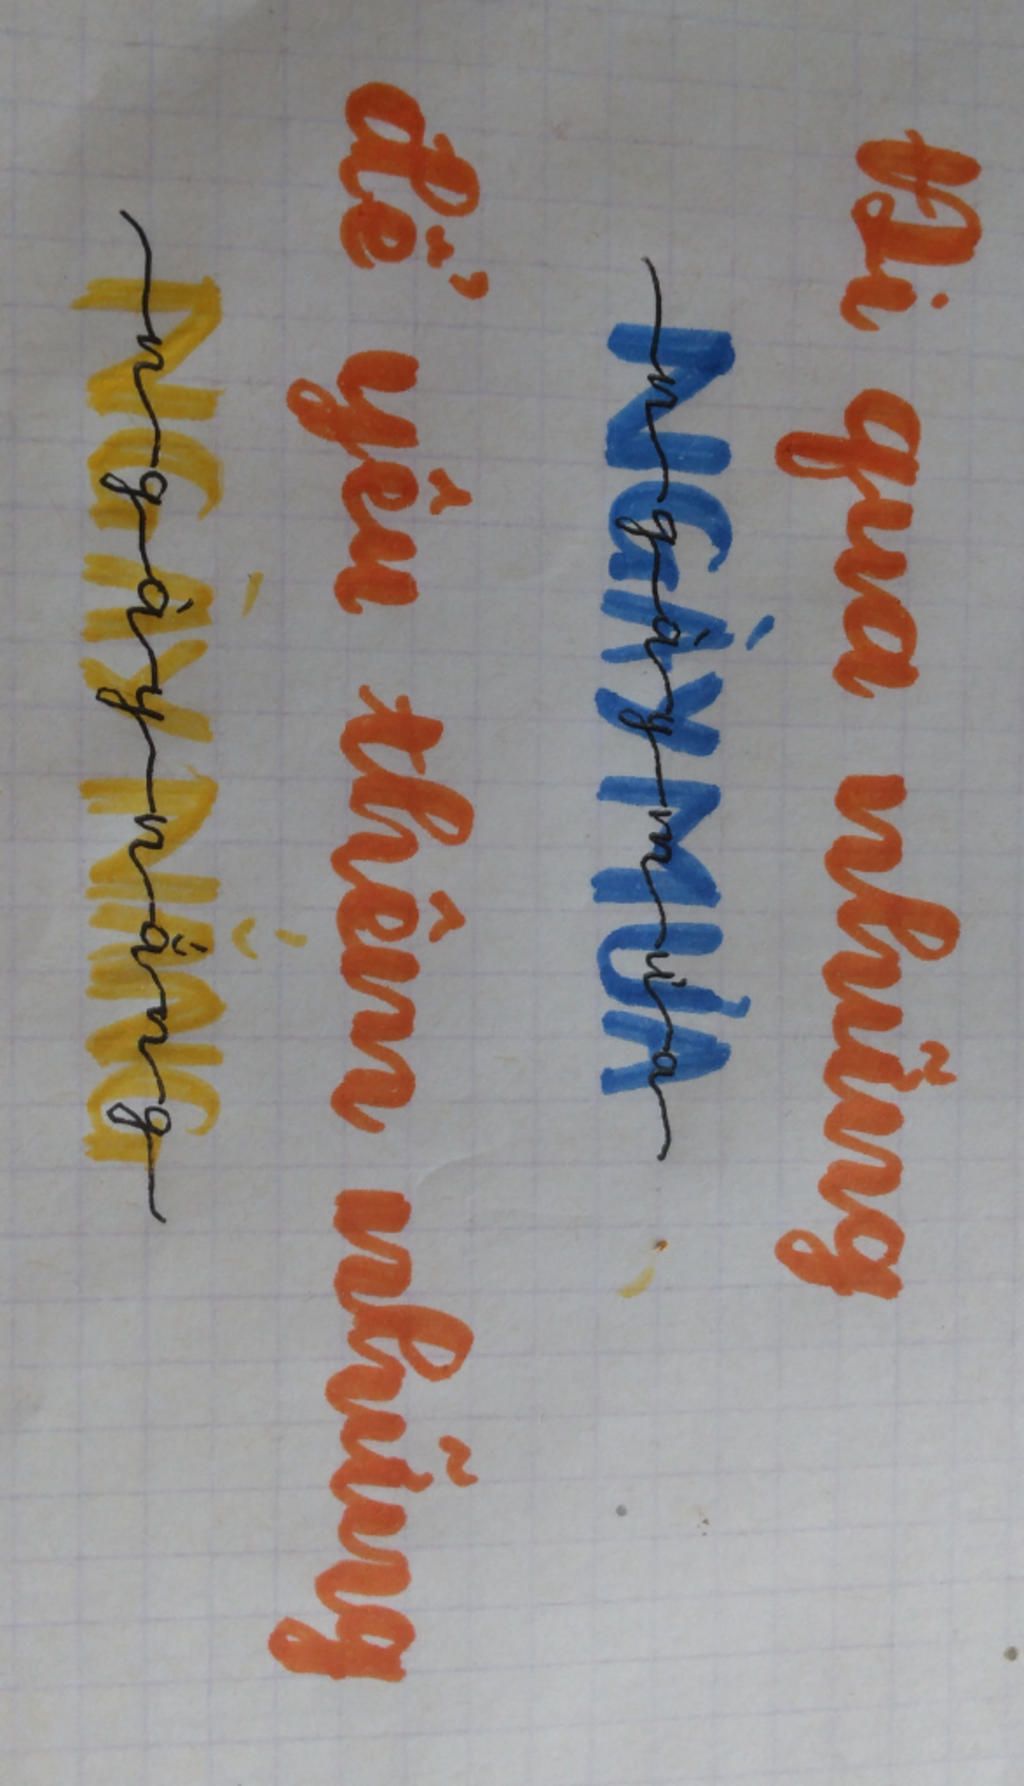 Đi qua những
NGÀY MƯA
ngày mưa
để yêu thêm những
NGÀY NẮNG
ngày nắng